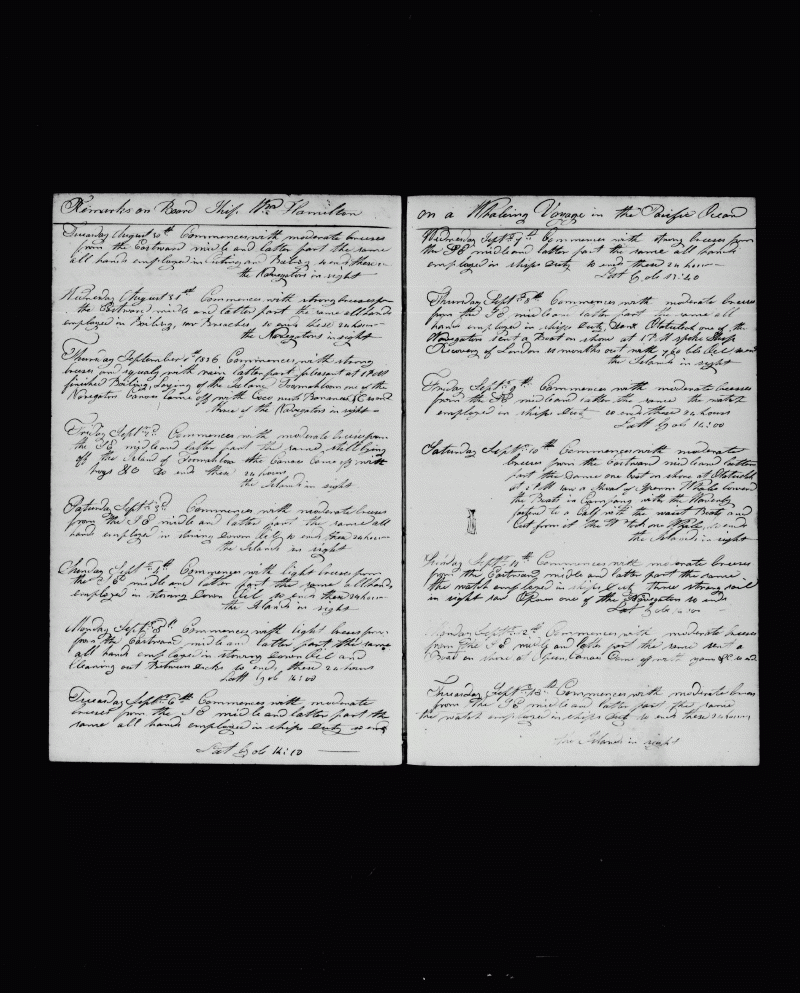 Remarks on Board Ship Wm Hamilton
Tuesday August 30th Commences with moderate breezes
from the Eastward midle and latter part the same
all hands employed in cuting and Boiling so ends these
the Navigators in sight
Wednesday August 31st Commences with strong breezes from
the Eastward midle and latter part the same all hands
employed in Boiling, sor Breaches, so ends these 24 hours
the Navigators in sight
Thursday September 1st 1836 Commences with strong
breezes and squaly with rain latter part pleasant at 1 PM
finished Boiling, laying of the Island one of the
Navigators Canoes came off with Coco nuts Bonanas &C so end
three of the Navigators in sight
Friday Sept 2d Commences with moderate breezes from
the S E midle and latter part the same, still lying
off the Island of the Canoes Come off with
hogs &C So ends these 24 hours
the Island in sight
Saturday Sept 3d Commences with moderate breezes
from the S E midle and latter part the same all
hands employed in stowing Down Oil so ends these 24 hours
the Islands in sight
Sunday Sept 4th Commences with light breezes from
the S E midle and latter part the same all hands
employed in stowing Down Oil so ends these 24 hours
the Islands in sight
Monday Sept 5th Commences with light breezes from
from the Eastward midle and latter part the same
all hands employed in stowing Down Oil and
Cleaning out Between Decks so ends these 24 hours
Latt by ob 14:00
Tuesday Sept 6th Commences with moderate
breezes from the S E midle and latter part the
same all hands employed in ships Duty so ends
Lat by ob 14:10
on a Whaleing Voyage in the Pacific Ocean
Wednesday Sept 7th Commences with strong breezes from
the S E midle and latter part the same all hands
employed in ships Duty so ends these 24 hours
Lat by ob 13:40
Thursday Sept 8th Commences with moderate breezes
from the S E midle and latter part the same all
hands employed in ships Duty, one of the
Navigators sent a Boat on shore at 1 PM spoke Ship
Recovery of London months out with 760 bbls Oil so ends
the Islands in sight
Friday Sept 9th Commences with moderate breezes
from the S E midle and latter the same the watch
employed in ships Duty so ends these 24 hours
Latt by ob 14:00
Saturday Sept 10th Commences with moderate
breezes from the Eastward midle and latter
part the Same one boat on shore at
at 2 PM saw a Shoal of Sperm Whales lowerd
the Boats in Company with the
fastend to a Calf with the waist Boat and
Cut from it the took one Whale, so ends
the Islands in sight
Sunday Sept 11th Commences with moderate breezes
from the Eastward midle and latter part the same
the watch employed in ships Duty three strange sail
in sight saw one of the Navigators so ends
Lat by ob
Monday Sept 12th Commences with moderate breezes
from the S E midle and later part the same sent a
Boat on shore at Canoes Come off with yams &C so ends
Tuesday Sept 13th Commences with moderate breezes
from the S E midle and latter part the same
the watch employed in ships Duty so ends these 24 hours
the Islands in sight